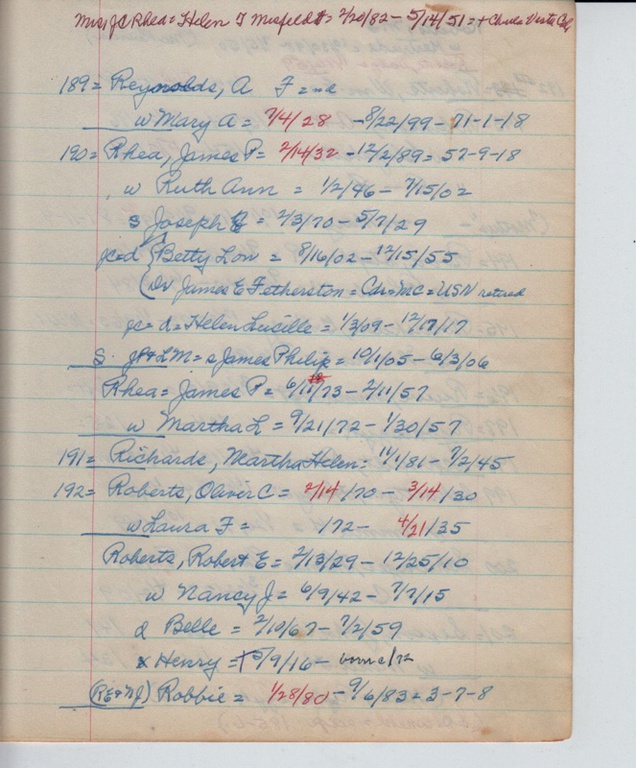 Mrs JC Rhea = Helen T Misfeldt = 2/20/82 - 5/14/51 = + Chula Vista Cal
189 = Reynolds, A F = na
w Mary A = 7/4/28 - 8/22/99 - 71-1-18
190 = Rhea, James P = 2/14/32 - 12/2/89 = 57-9-18
w Ruth Ann = 1/2/46 - 7/15/02
s Joseph = 2/3/70 - 5/7/29
jc d { Betty Lou = 8/16/02 - 12/15/55
( Dr James E Fetherston = Cdr = MC = USN retired
jc = d = Helen Lucille = 1/3/09 - 12/17/17
S. JP & LM = s James Philip = 10/1/05 - 6/3/06
Rhea = James P = 6/18/73 - 2/11/57
w Martha L = 9/21/72 - 1/30/57
191 = Richards, Martha Helen = 11/1/81 - 7/2/45
192 = Roberts, Oliver C = 2/14/70 - 3/14/30
w Laura F = 172 - 4/21/35
Roberts, Robert E = 2/13/29 - 12/25/10
w Nancy J = 6/9/42 - 7/7/15
d Belle = 2/10/67 - 7/2/59
Henry = 5/9/16 -
(RE & NJ) Robbie = 1/28/80 - 9/6/83 = 3-7-8